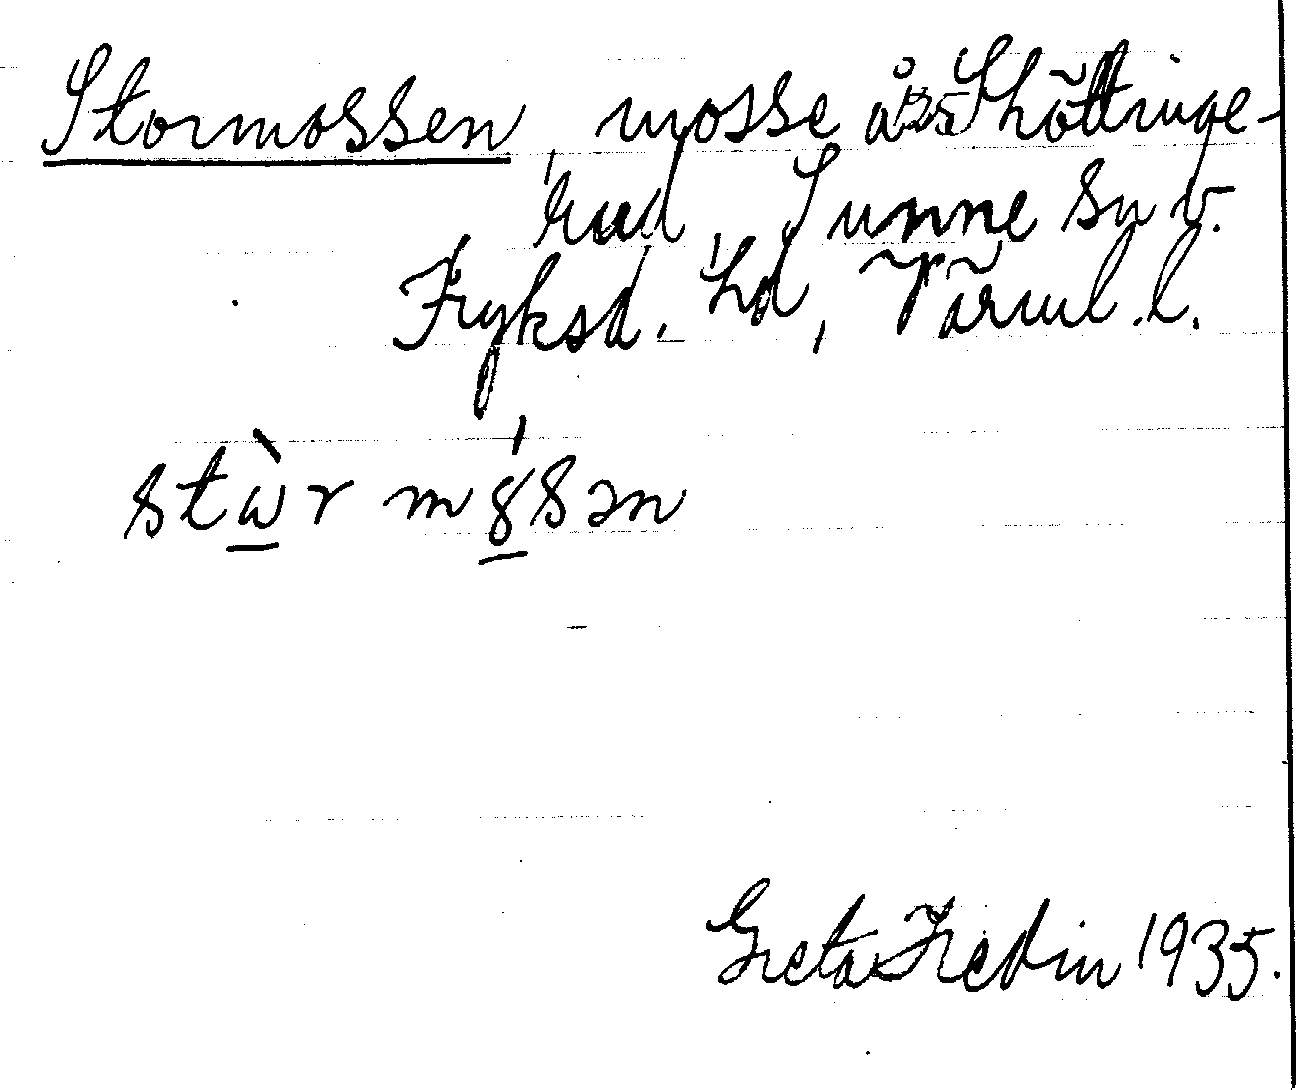 Stormossen, mosse å 125 Skättinge-
rud, Sunne sn v.
Fryksd. hd, Värml. l.
stὼr mǿsən
Greta Fredin 1935.